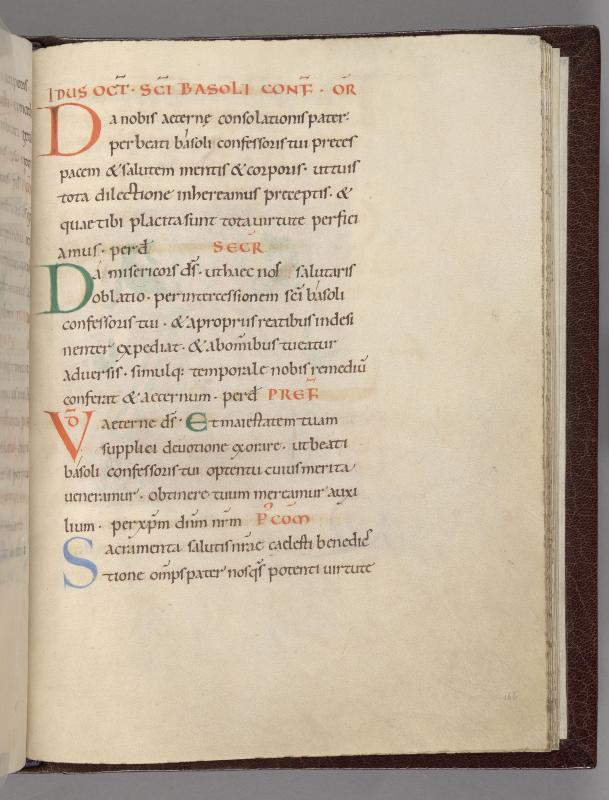 IDUS OCT̄ · SC̄I BASOLI CONF̄ · OR̄
Da nobis aeterne consolationis pater·
per beati basoli confessoris tui preces
pacem & salutem mentis & corporis · ut tuis
tota dilectione inhereamus preceptis · &
quae tibi placita sunt tota uirtute perfici
amus · per dn̄
SECR̄
Da misericors ds̄ · ut haec nos̄ salutaris
oblatio · per intercessionem sc̄i basoli
confessoris tui · & a propriis reatibus indesi
nenter expediat · & ab omnibus tueatur
aduersis · simulq: temporale nobis remediū
conferat & aeternum · per dn̄ PREF̄
VD̄ aeterne ds̄ · Et maiestatem tuam
supplici deuotione exorare · ut beati
basoli confessoris tui optentu cuius merita
ueneramur · obtinere tuum mereamur auxi
lium · per xp̄m dn̄m nr̄m P̄ COM̄
Sacramenta salutis nr̄ae caelesti benedic
tione om̄ps pater nos qs̄ potenti uirtute
166